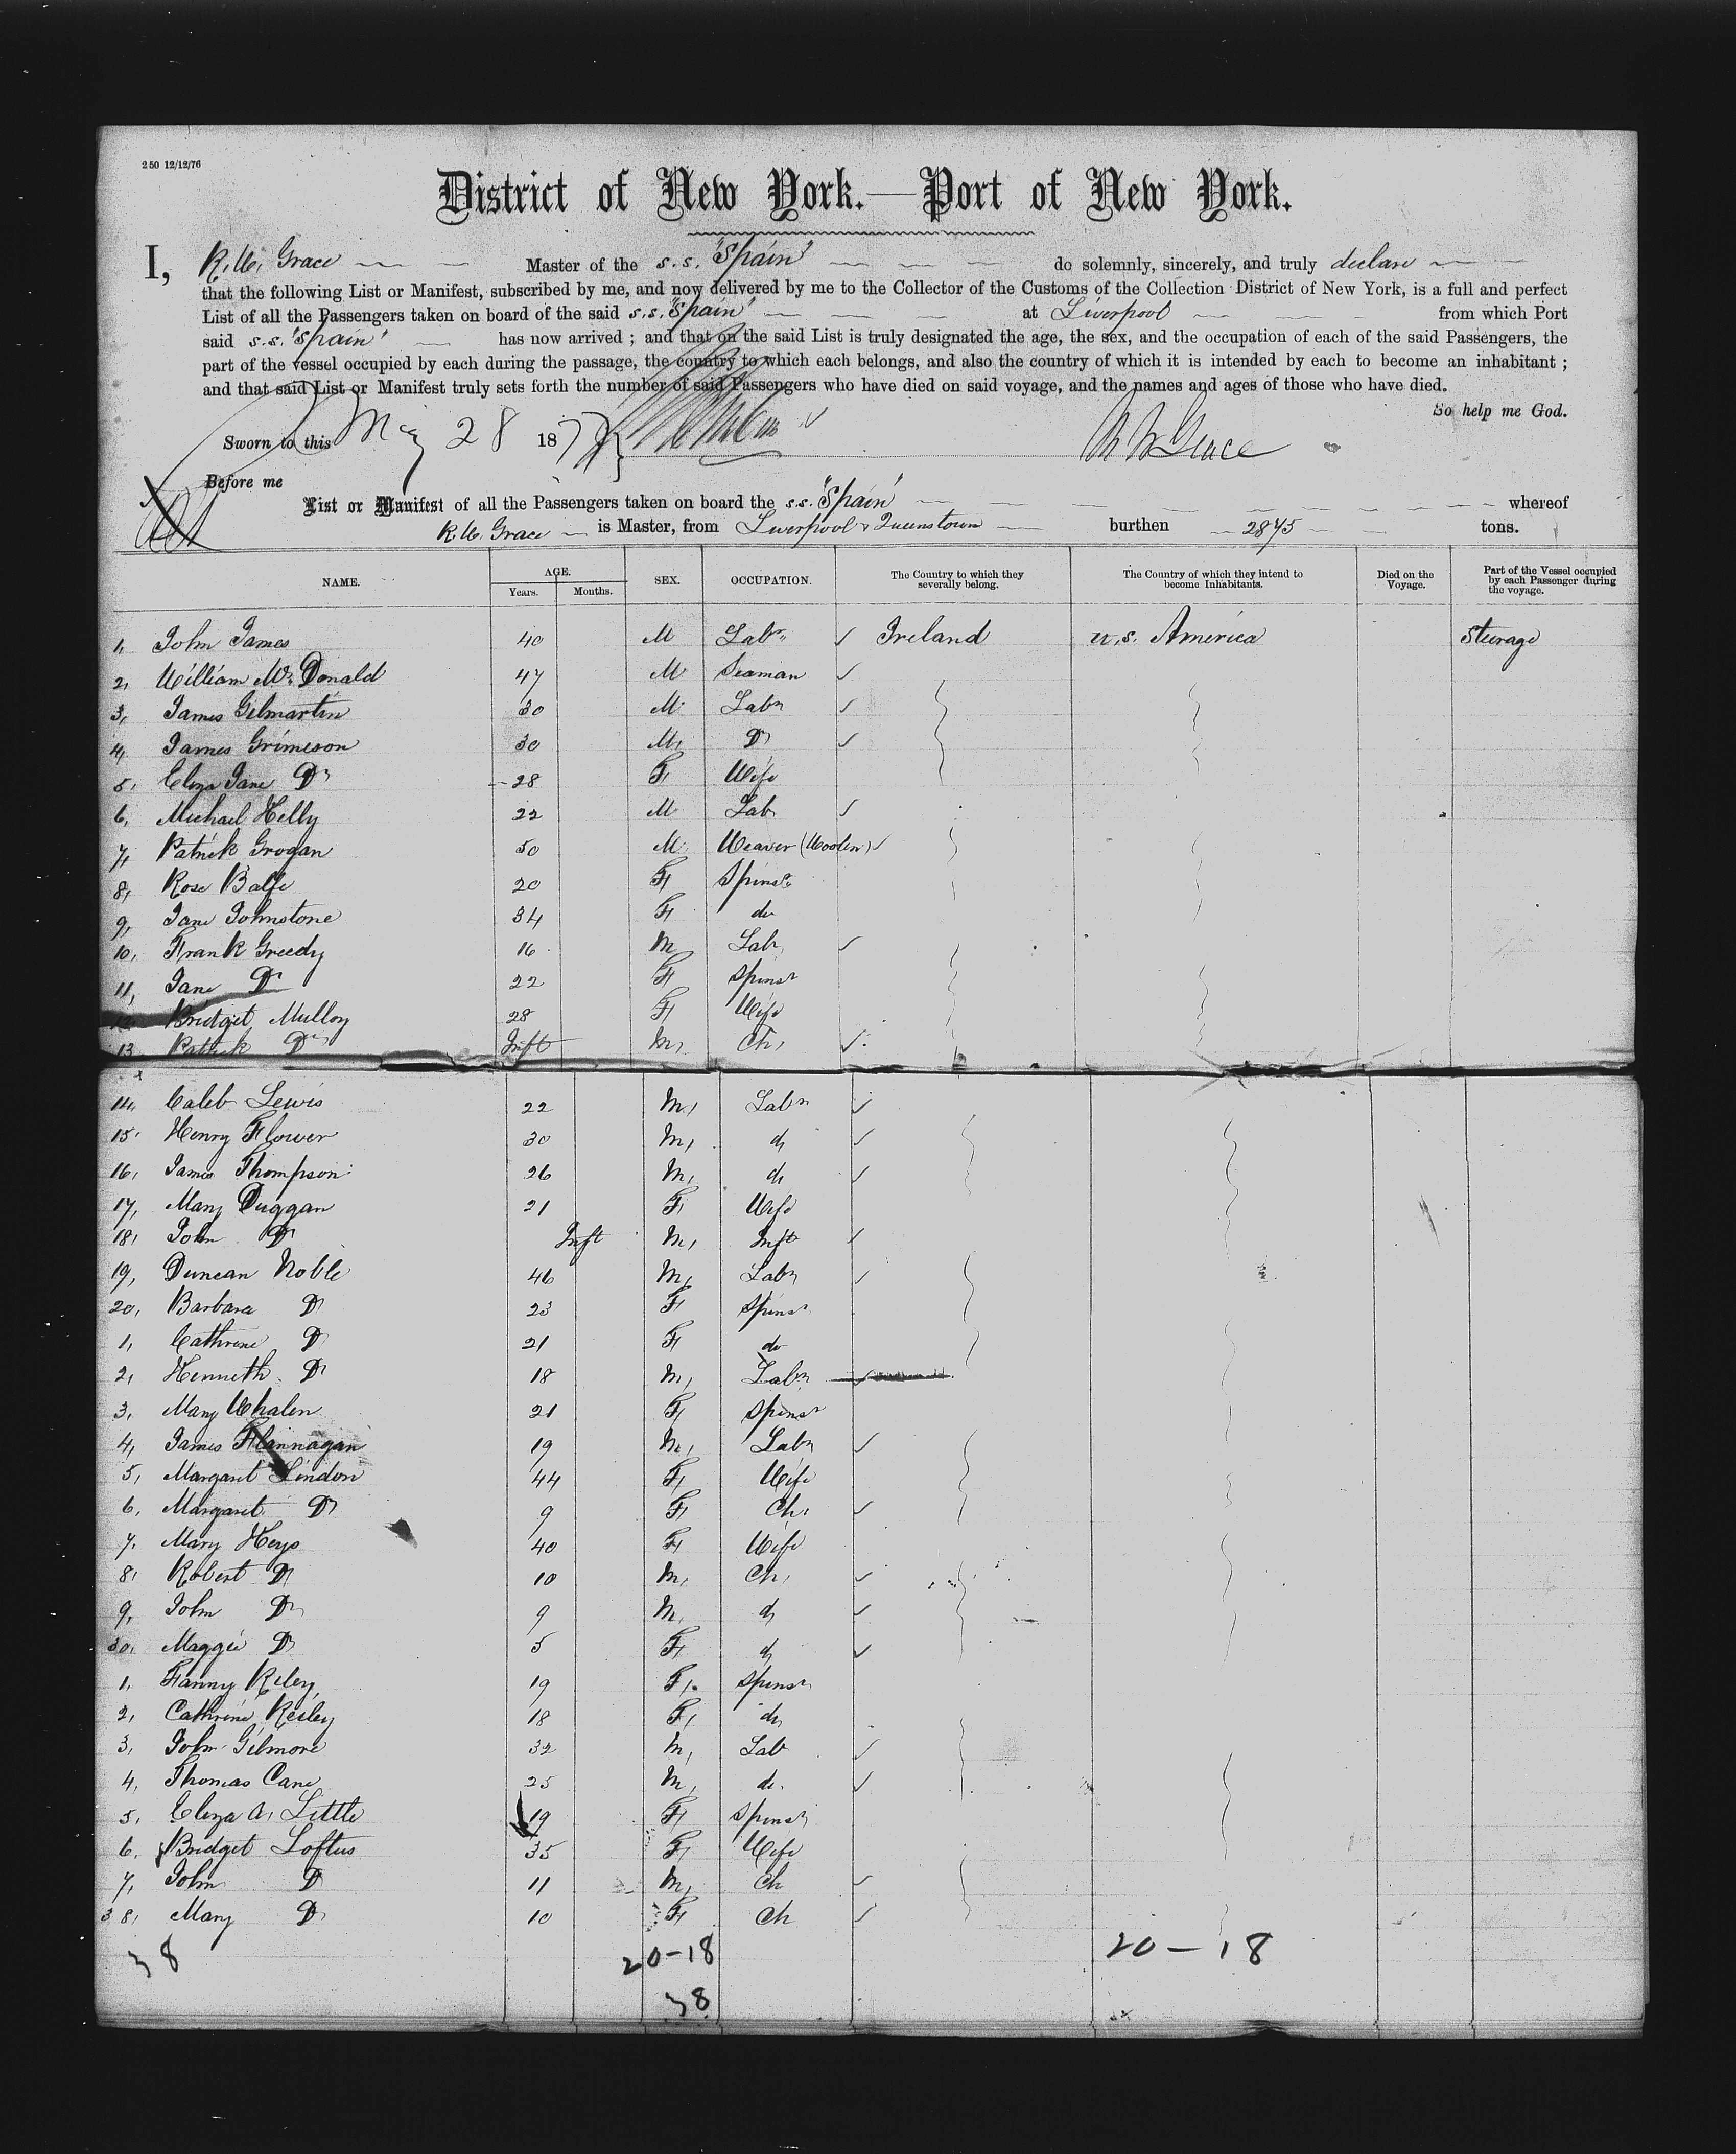 250 12/12/76
District of New York.—Port of New York.
I, R. W. Grace Master of the s.s. "Spain" do solemnly, sincerely, and truly declare
that the following List or Manifest, subscribed by me, and now delivered by me to the Collector of the Customs of the Collection District of New York, is a full and perfect
List of all the Passengers taken on board of the said s.s. "Spain" at Liverpool from which Port
said s.s. "Spain" has now arrived ; and that on the said List is truly designated the age, the sex, and the occupation of each of the said Passengers, the
part of the vessel occupied by each during the passage, the country to which each belongs, and also the country of which it is intended by each to become an inhabitant ;
and that said List or Manifest truly sets forth the number of said Passengers who have died on said voyage, and the names and ages of those who have died.
So help me God.
Sworn to this May 28 187 R W Grace
Before me
List or Manifest of all the Passengers taken on board the s.s. "Spain" whereof
R. W. Grace is Master, from Liverpool & Queenstown burthen 2875 tons.
NAME. AGE. Years. Months. SEX. OCCUPATION. The Country to which they severally belong. The Country of which they intend to become Inhabitants. Died on the Voyage. Part of the Vessel occupied by each Passenger during the voyage.
1, John James 40 M Labr ✓ Ireland U.S. America Steerage
2, William McDonald 47 M Seaman ✓
3, James Gilmartin 30 M Labr ✓
4, James Grimeson 30 M Do ✓
5, Eliza Jane Do 28 F Wife
6, Michael Kelly 22 M Lab ✓
7, Patrick Grogan 50 M Weaver (Woolen) ✓
8, Rose Balfe 20 F Spinst
9, Jane Johnstone 34 F do
10, Frank Greedy 16 M Lab ✓
11, Jane Do 22 F Spinsr
12 Bridget Mulloy 28 F Wife
13 Patrick Do Inft M Ch, ✓
14, Caleb Lewis 22 M Labr ✓
15, Henry Flower 30 M do ✓
16, James Thompson 26 M do ✓
17, Mary Duggan 21 F Wife
18, John Do Inft M Inft ✓
19, Duncan Noble 46 M Labr ✓
20, Barbara Do 23 F Spinsr
1, Cathrine Do 21 F do
2, Kenneth Do 18 M Labr ✓
3, Mary Whalen 21 F Spinsr
4, James Flannagan 19 M Labr ✓
5, Margaret Lindon 44 F Wife
6, Margaret Do 9 F Ch, ✓
7, Mary Keys 40 F Wife
8, Robert Do 10 M Ch, ✓
9, John Do 9 M do ✓
30, Maggie Do 5 F do ✓
1, Fanny Riley 19 F Spinsr
2, Cathrine Reiley 18 F do
3, John Gilmore 32 M Lab ✓
4, Thomas Cane 25 M do ✓
5, Eliza A. Little 19 F Spinsr
6, Bridget Loftus 35 F Wife
7, John Do 11 M Ch ✓
38, Mary Do 10 F Ch ✓
38 20-18 20-18
38